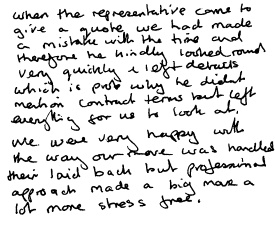 when the representative came to
give a quote we had made
a mistake with the time and
therefore he kindly looked round
very quickly & left details
which is prob why he didnt
mention contract terms but left
everything for us to look at.
we were very happy with
the way our move was handled
their laid back but professional
approach made a big move a
lot more stress free.